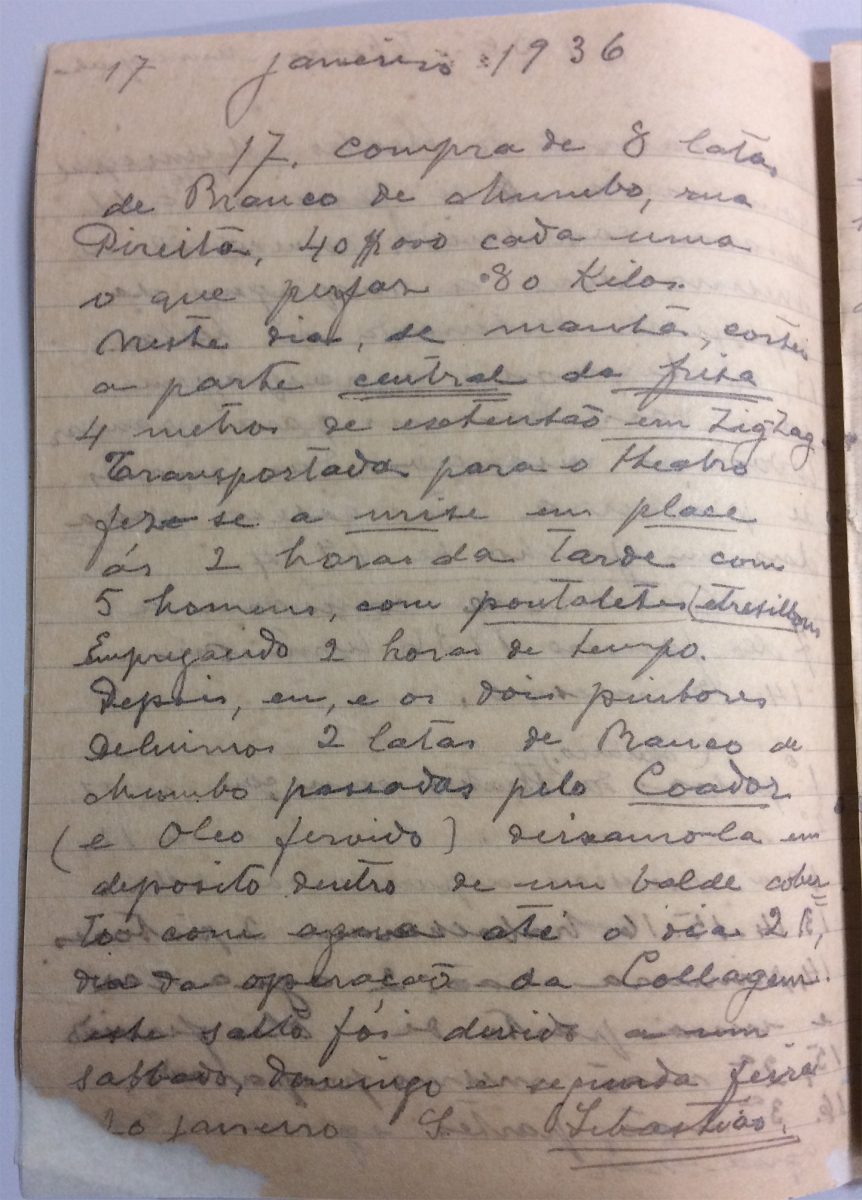 17 janeiro 1936
17. compra de 8 latas
de Branco de chumbo, rua
Direita, 40$000 cada uma
o que perfaz 80 Kilos.
Neste dia, de manhã, cortei
a parte central da frisa
4 metros de extensão em ZigZag
Transportada para o theatro
feze se a mise em place
ás 2 horas da tarde com
5 homens, com pontaletes (etresillons
Empregando 2 horas de tempo.
Depois, eu, e os dois pintores
deluimos 2 latas de Branco de
chumbo passadas pelo Coador
(e Oleo fervido) deixamo-la em
deposito dentro de um balde cober
to com agua até o dia 21,
dia da operação da Collagem.
este salto fói devido a um
sabbado, domingo e segunda feira
20 janeiro S. Sebastião.